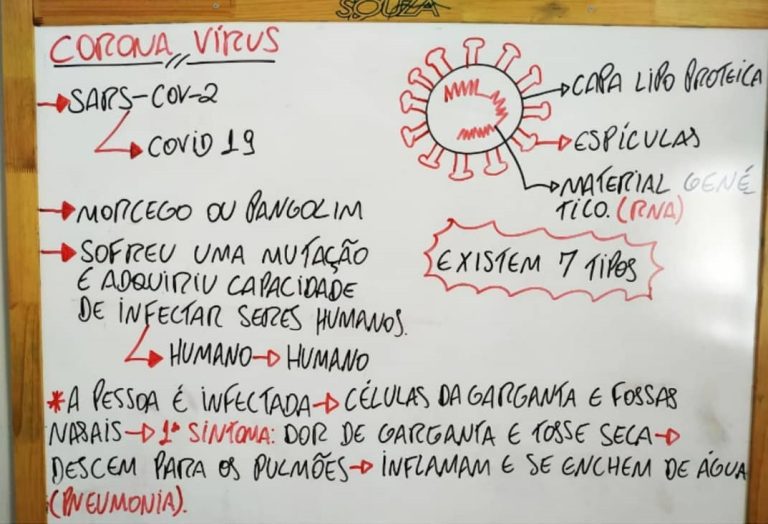 SOUZA
CORONA VÍRUS
SARS-COV-2
COVID 19
MORCEGO OU PANGOLIM
SOFREU UMA MUTAÇÃO
E ADQUIRIU CAPACIDADE
DE INFECTAR SERES HUMANOS.
HUMANO → HUMANO
CAPA LIPO PROTEICA
ESPÍCULAS
MATERIAL GENÉ
TICO. (RNA)
EXISTEM 7 TIPOS
*A PESSOA É INFECTADA → CÉLULAS DA GARGANTA E FOSSAS
NASAIS → 1º SINTOMA: DOR DE GARGANTA E TOSSE SECA →
DESCEM PARA OS PULMÕES → INFLAMAM E SE ENCHEM DE ÁGUA
(PNEUMONIA).